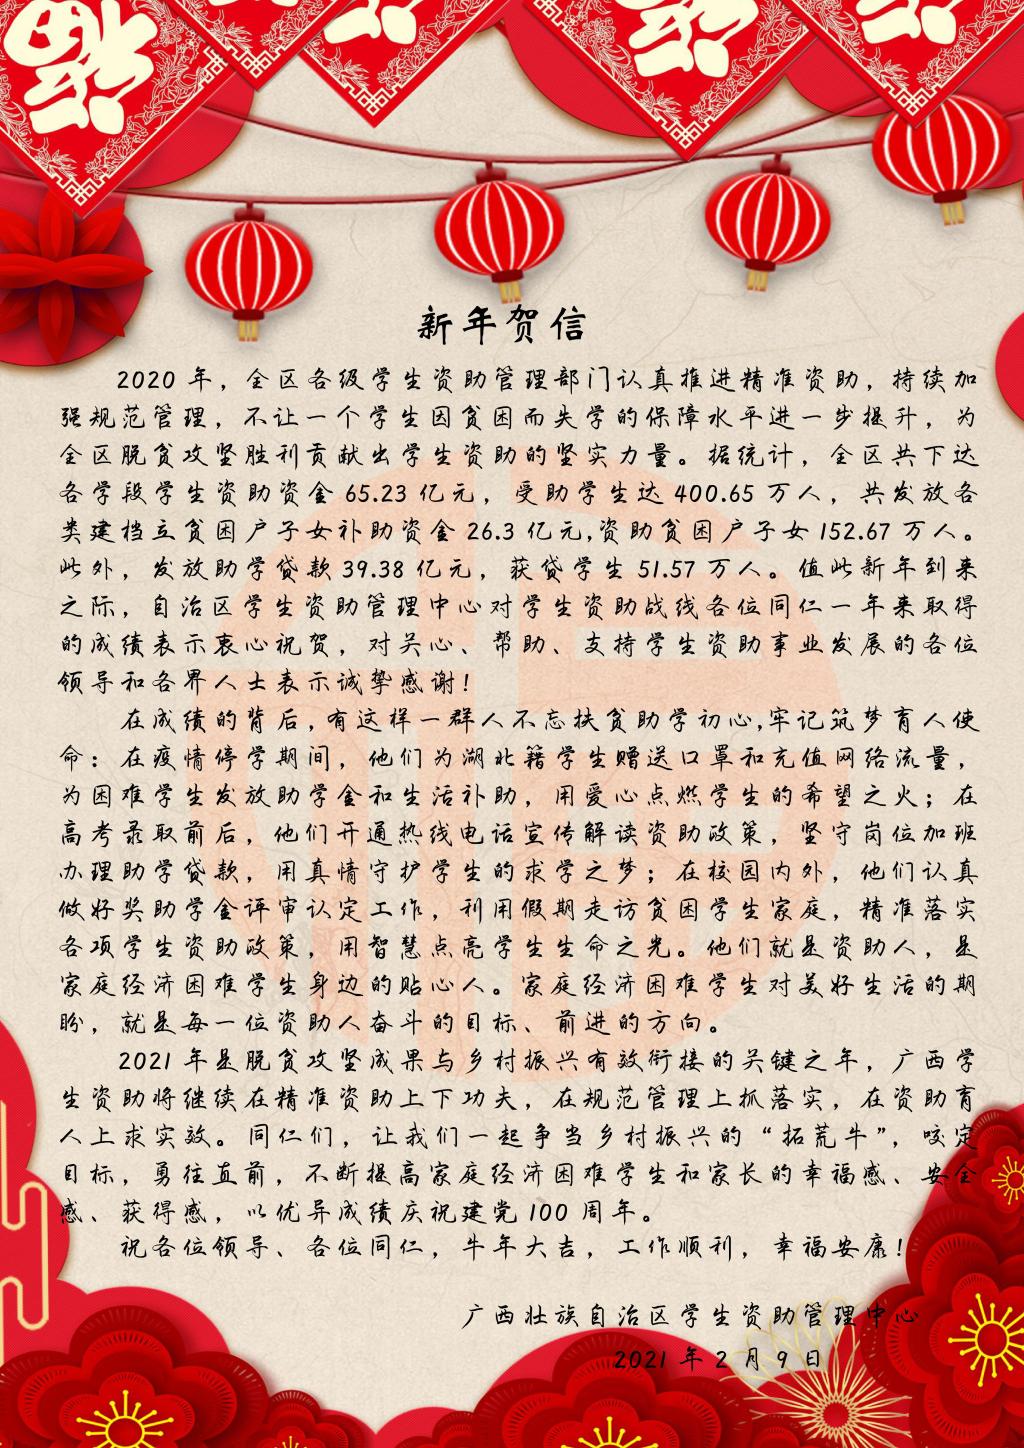 新年贺信
2020 年，全区各级学生资助管理部门认真推进精准资助，持续加
强规范管理，不让一个学生因贫困而失学的保障水平进一步提升，为
全区脱贫攻坚胜利贡献出学生资助的坚实力量。据统计，全区共下达
各学段学生资助资金 65.23 亿元，受助学生达 400.65 万人，共发放各
类建档立贫困户子女补助资金 26.3 亿元,资助贫困户子女 152.67 万人。
此外，发放助学贷款 39.38 亿元，获贷学生 51.57 万人。值此新年到来
之际，自治区学生资助管理中心对学生资助战线各位同仁一年来取得
的成绩表示衷心祝贺，对关心、帮助、支持学生资助事业发展的各位
领导和各界人士表示诚挚感谢！
在成绩的背后,有这样一群人不忘扶贫助学初心,牢记筑梦育人使
命：在疫情停学期间，他们为湖北籍学生赠送口罩和充值网络流量，
为困难学生发放助学金和生活补助，用爱心点燃学生的希望之火；在
高考录取前后，他们开通热线电话宣传解读资助政策，坚守岗位加班
办理助学贷款，用真情守护学生的求学之梦；在校园内外，他们认真
做好奖助学金评审认定工作，利用假期走访贫困学生家庭，精准落实
各项学生资助政策，用智慧点亮学生生命之光。他们就是资助人，是
家庭经济困难学生身边的贴心人。家庭经济困难学生对美好生活的期
盼，就是每一位资助人奋斗的目标、前进的方向。
2021 年是脱贫攻坚成果与乡村振兴有效衔接的关键之年，广西学
生资助将继续在精准资助上下功夫，在规范管理上抓落实，在资助育
人上求实效。同仁们，让我们一起争当乡村振兴的“拓荒牛”，咬定
目标，勇往直前，不断提高家庭经济困难学生和家长的幸福感、安全
感、获得感，以优异成绩庆祝建党 100 周年。
祝各位领导、各位同仁，牛年大吉，工作顺利，幸福安康！
广西壮族自治区学生资助管理中心
2021 年 2 月 9 日